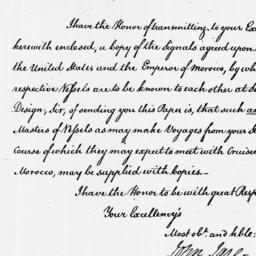 I have the Honor of transmitting to your Exc
herewith enclosed, a Copy of the Signals agreed upon
the United States and the Emperor of Morocco, by wh
respective Vessels are to be known to each other at S
Design, Sir, of sending you this Paper is, that such as
Masters of Vessels as may make Voyages from your S
Course of which they may expect to meet with Cruise
Morocco, may be supplied with Copies.—
I have the Honor to be with great Resp
Your Excellency's
Most obt. and hble:
John Jay—